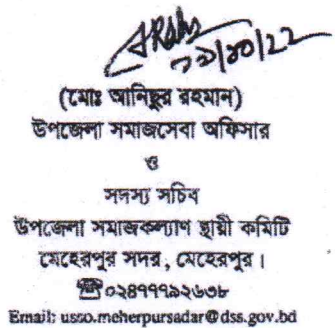 (মোঃ আনিছুর রহমান)
উপজেলা সমাজসেবা অফিসার
ও
সদস্য সচিব
উপজেলা সমাজকল্যাণ স্থায়ী কমিটি
মেহেরপুর সদর, মেহেরপুর।
☎০২৪৭৭৭৯২৬৩৮
Email: usso.meherpursadar@dss.gov.bd